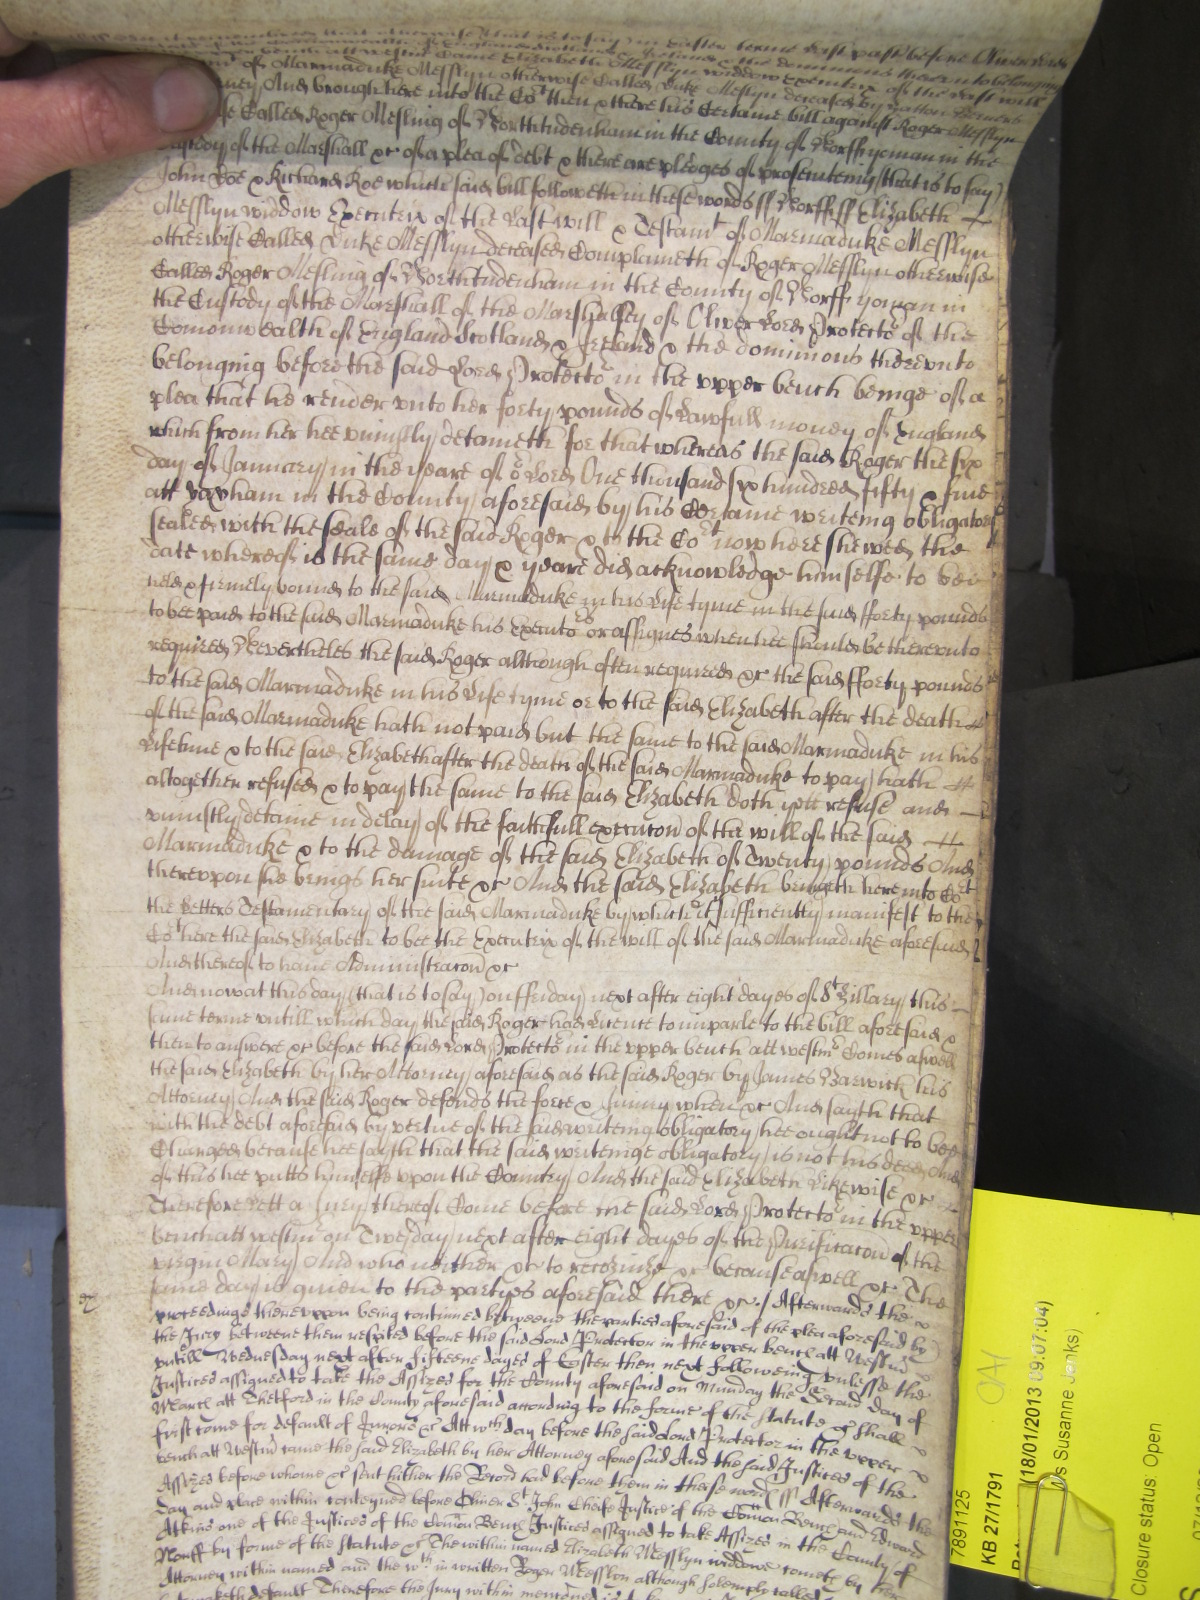 that is to say in Easter terme last past before Oliver Lord
came Elizabeth Messlyn widdow Executrix of the last will
of Marmaduke Messlyn otherwise Called Duke Messlyn deceased by
And brought here into the Cort then & there his Certaine bill against Roger Messlyn
Called Roger Mesling of Northtudenham in the County of Norff yoman in the
Custody of the Marshall &c of a plea of debt & there are pledges of prosecuteing (that is to say)
John Doe & Richard Roe which said bill followeth in these words ss Norff ss Elizabeth
Messlyn widdow Executrix of the Last will & Testamt of Marmaduke Messlyn
otherwise Called Duke Messlyn deceased Complaineth of Roger Messlyn otherwise
Called Roger Mesling of Northtudenham in the County of Norff yoman in
the Custody of the Marshall of the Marshalsey of Oliver Lord Protector of the
Comonwealth of England Scotland & Ireland & the dominions thereunto
belonging before the said Lord Protector in the upper bench beinge of a
plea that he render unto her forty pounds of Lawfull money of England
which from her hee uniustly detaineth for that whereas the said Roger the six
day of January in the yeare of or Lord One thousand six hundred fifty & five
att in the County aforesaid by his Certaine writeing obligatory
sealed with the seale of the said Roger & to the Cort now here shewed the
date whereof is the same day & yeare did acknowledge himselfe to bee
held & firmely bound to the said Marmaduke in his Life tyme in the said fforty pounds
to bee paid to the said Marmaduke his Executors or assignes when hee should be thereunto
required Neverthelesse the said Roger although often required &c the said fforty pounds
to the said Marmaduke in his Life tyme or to the said Elizabeth after the death
of the said Marmaduke hath not paid but the same to the said Marmaduke in his
Lifetime & to the said Elizabeth after the death of the said Marmaduke to pay hath
altogether refused & to pay the same to the said Elizabeth doth yett refuse and
uniustly detaine in delay of the faithfull execucon of the will of the said
Marmaduke & to the damage of the said Elizabeth of Twenty pounds And
thereupon she brings her suite &c And the said Elizabeth bringeth here into Cort
the Letters Testamentary of the said Marmaduke by which it sufficiently manifest to the
Cort here the said Elizabeth to bee the Executrix of the will of the said Marmaduke aforesaid
And thereof to have Administracon &c
And now at this day (that is to say) on ffriday next after eight dayes of St Hillary this
same terme untill which day the said Roger had Licence to imparle to the bill aforesaid &
then to answere &c before the said Lord Protector in the upper bench att westmr Comes aswell
the said Elizabeth by her Attorney aforesaid as the said Roger by James Barwick his
Attorney And the said Roger defends the force & Iniury when &c And sayth that
with the debt aforesaid by vertue of the said writeing obligatory hee ought not to bee
Charged because hee sayth that the said writeinge obligatory is not his deed And
of this hee putts himselfe upon the Country And the said Elizabeth Likewise &c
Therefore Lett a Jury thereof Come before the said Lord Protector in the upper
bench att westmr on Tuesday next after eight dayes of the Purificacon of the
virgin Mary And who neither &c to recognize &c because aswell &c The
same day is given to the partyes aforesaid there &c. Afterwards the
proceedings thereupon being continued betweene the parties aforesaid of the plea aforesaid by
the Jury betweene them respited before the said Lord Protector in the upper bench att Westmr
untill Wednesday next after fifteene dayes of Easter then next following unlesse the
Justices assigned to take the Assizes for the County aforesaid on Munday the Second day of
March att Thetford in the County aforesaid according to the forme of the Statute &c shall
first come for default of Jurors &c Att wch day before the said Lord Protector in the upper
bench att Westmr came the said Elizabeth by her Attorney aforesaid And the said Justices of the
Assizes before whome &c sent hither the Record had before them in these words ss Afterwards the
day and place within conteyned before Oliver St John Cheife Justice of the Comon Bench and Edward
Atkins one of the Justices of the Comon Bench Justices assigned to take Assizes in the County of
Norff by forme of the Statute &c The within named Elizabeth Messlyn widdow cometh by her
Attorney within named and the wthin written Roger Messlyn although solemply called
default Therefore the Jury within
7891125
KB 27/1791
(18/01/2013 09:07:04)
s Susanne Jenks)
Closure status: Open